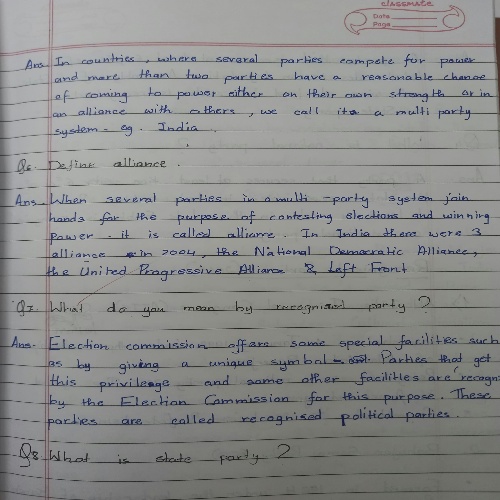 classmate
Date
Page
Ans. In countries, where several parties compete for power
and more than two parties have a reasonable chance
of coming to power either on their own strength or in
an alliance with others, we call it a multi party
system - eg. India.
Q6. Define alliance.
Ans. When several parties in a multi-party system join
hands for the purpose of contesting elections and winning
power. it is called alliance. In India there were 3
alliance in 2004, the National Democratic Alliance,
the United Progressive Alliance & Left Front
Q7. What do you mean by recognised party?
Ans. Election commission offers some special facilities such
as by giving a unique symbol - Parties that get
this privilege and some other facilities are recogn
by the Election Commission for this purpose. These
parties are called recognised political parties.
Q8. What is state party?